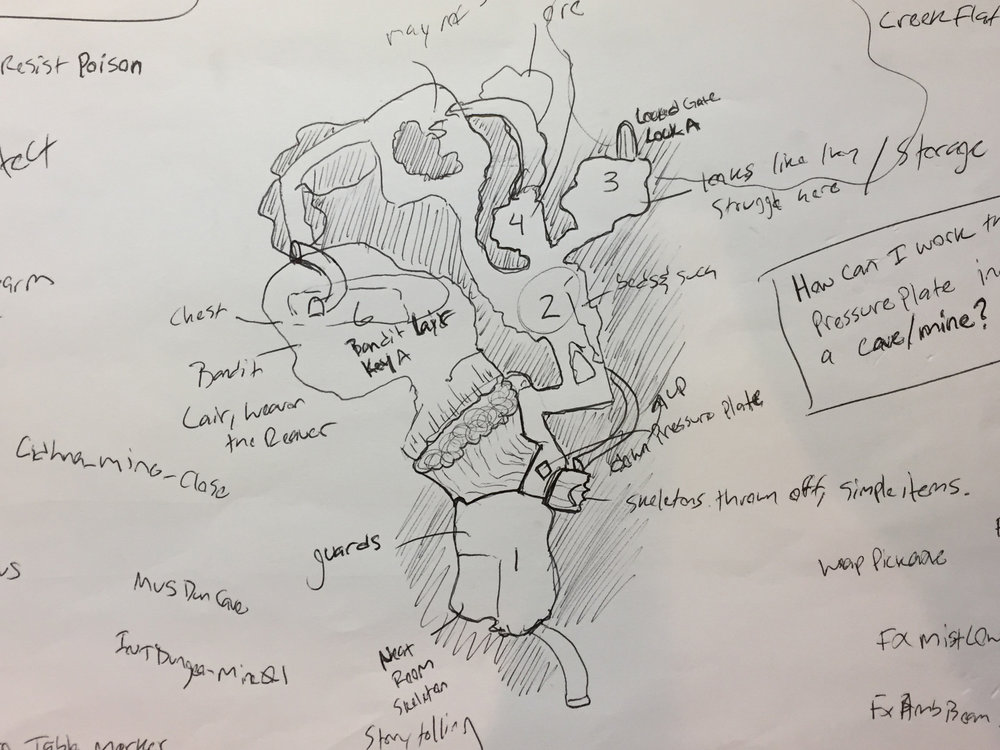 may not
ore
Creek Flat
Resist Poison
Locked Gate
Lock A
3
looks like
struggle here
/ Storage
4
2
Beds & such
How can I work th
Pressure Plate in
a cave/mine?
arm
Chest
6
Bandit Lair
Key A
Bandit
Lair, Weaver
the Reaver
up
down Pressure Plate
skeletons thrown off, simple items.
guards
1
Mus Dun Cave
Wrap Pickaxe
Neat
Room
Skeleton
Story telling
FX Mist Low
FX Amb Beam
Table marker